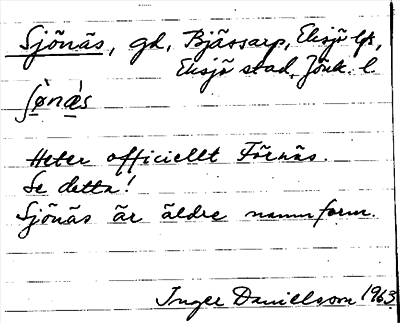 Sjönäs, gd, Bjässarp, Eksjö lfs,
Eksjö stad, Jönk. l.
ʃø̀næ̀s
Heter officiellt Förnäs.
Se detta!
Sjönäs är äldre namnform.
Inger Danielsson 1963